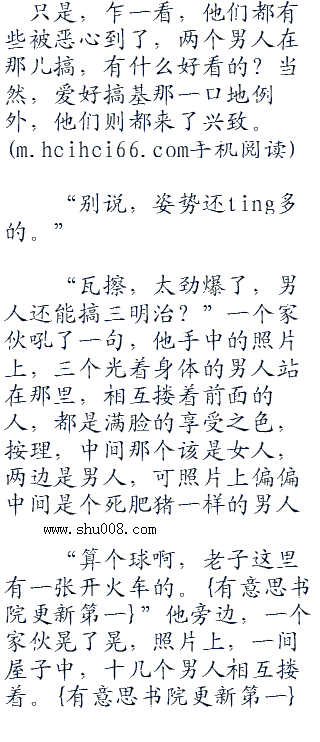 只是，乍一看，他们都有
些被恶心到了，两个男人在
那儿搞，有什么好看的？当
然，爱好搞基那一口地例
外，他们则都来了兴致。
(m.hcihci66.com手机阅读)
“别说，姿势还ting多
的。”
“瓦擦，太劲爆了，男
人还能搞三明治？”一个家
伙吼了一句，他手中的照片
上，三个光着身体的男人站
在那里，相互搂着前面的
人，都是满脸的享受之色，
按理，中间那个该是女人，
两边是男人，可照片上偏偏
中间是个死肥猪一样的男人
www.shu008.com
“算个球啊，老子这里
有一张开火车的。{有意思书
院更新第一}”他旁边，一个
家伙晃了晃，照片上，一间
屋子中，十几个男人相互搂
着。{有意思书院更新第一}